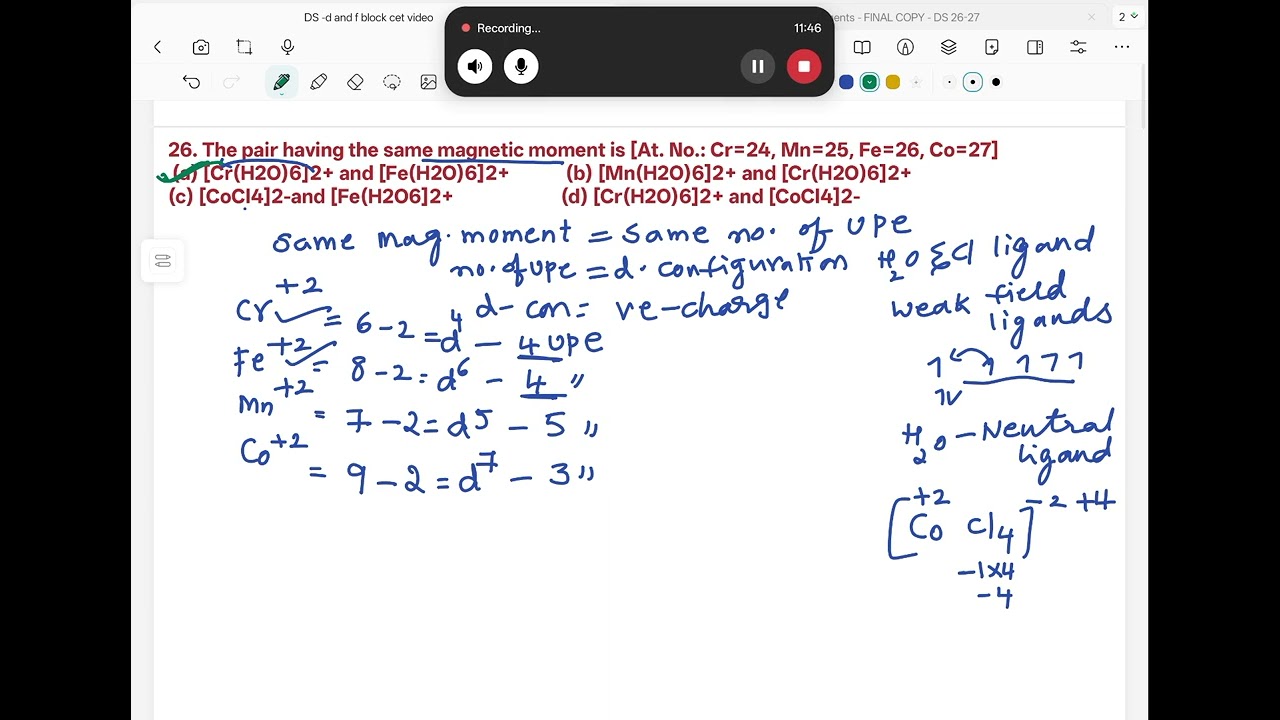 DS -d and f block cet video
ents - FINAL COPY - DS 26-27
2
Recording...
11:46
26. The pair having the same magnetic moment is [At. No.: Cr=24, Mn=25, Fe=26, Co=27]
(a) [Cr(H2O)6]2+ and [Fe(H2O)6]2+ (b) [Mn(H2O)6]2+ and [Cr(H2O)6]2+
(c) [CoCl4]2-and [Fe(H2O6]2+ (d) [Cr(H2O)6]2+ and [CoCl4]2-
same mag. moment = same no. of UPE
no. of upe = d. configuration
d- con = ve-charge
Cr+2 = 6-2 = d4 - 4 upe
Fe+2 = 8-2 = d6 - 4 "
Mn+2 = 7-2 = d5 - 5 "
Co+2 = 9-2 = d7 - 3 "
H2O & Cl ligand
weak field
ligands
1 1 1 1 1
1v
H2O - Neutral
ligand
[Co+2 Cl4]-2 +4
-1x4
-4